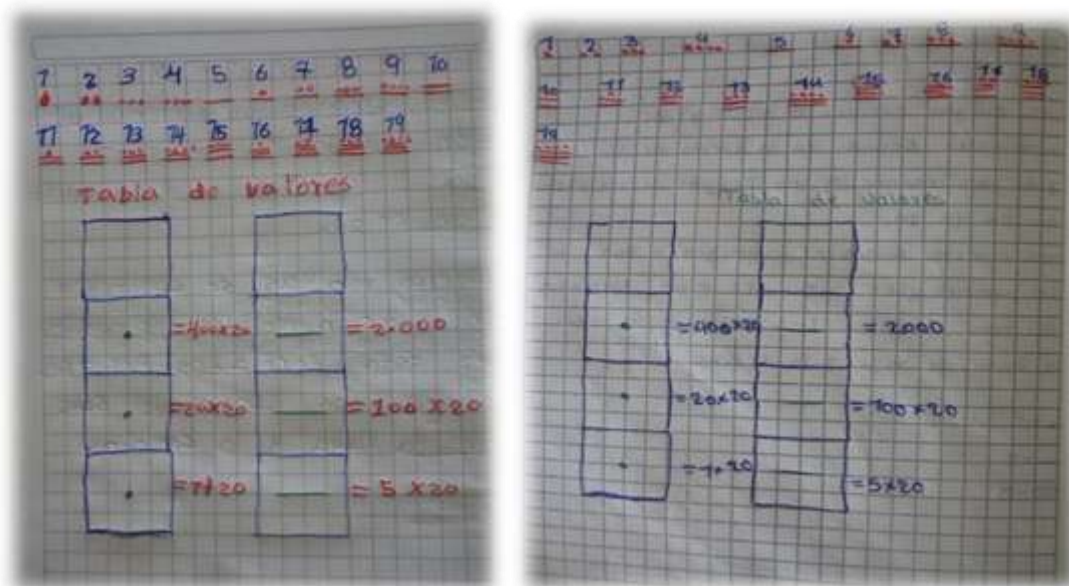 1 2 3 4 5 6 7 8 9 10
11 12 13 14 15 16 17 18 19
Tabla de valores
=400x20 = 2.000
=20x20 = 100 x20
=1x20 = 5 x20
1 2 3 4 5 6 7 8 9
10 11 12 13 14 15 16 17 18
19
Tabla de valores
=400x20 = 2000
=20x20 =100x20
=1x20 =5x20